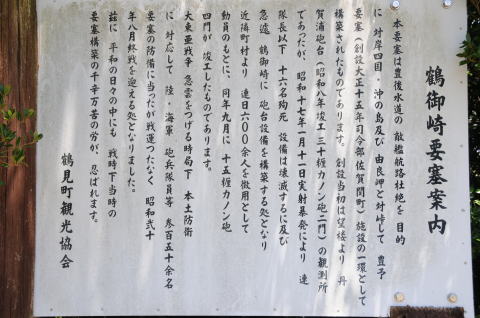 鶴御崎要塞案内
本要塞は豊後水道の 敵艦航路杜絶を 目的
に 対岸四国・沖の島及び 由良岬と対峙して 豊予
要塞（創設大正十五年司令部佐賀関町）施設の一環として
構築されたものであります。 創設当初は望楼より 丹
賀浦砲台（昭和八年竣工三十糎カノン砲二門）の観測所
であったが、昭和十七年一月十一日実射暴発により 連
隊長以下 十六名殉死 設備は壊滅するに及び
急遽 鶴御崎に 砲台設備を構築する処となり
近隣町村より 連日600余人を徴用として
動員のもとに、同年九月に 十五糎カノン砲
四門が 竣工したものであります。
大東亜戦争 急雲をつげる時局下 本土防衛
に 対応して 陸・海軍 砲兵隊員等 参百五十余名
要塞の防備に当ったが戦運つたなく 昭和弐十
年八月終戦を迎える処となりました。
茲に 平和の日々の中にも 戦時下当時の
要塞構築の千辛万苦の労が、忍ばれます。
鶴見町観光協会